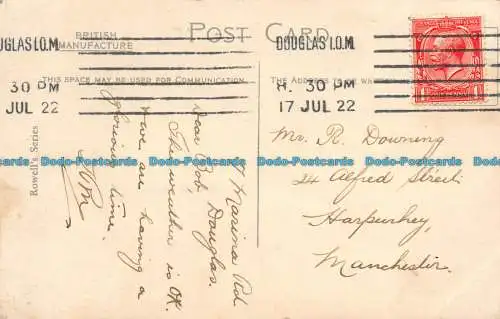 BRITISH
MANUFACTURE
POST CARD
DOUGLAS I.O.M.
30 PM
JUL 22
DOUGLAS I.O.M.
8. 30 PM
17 JUL 22
THIS SPACE MAY BE USED FOR COMMUNICATION.
THE ADDRESS TO BE
Rowell's Series
Marina Rd
Douglas.
Dear Bob,
The weather is OK
& we are having a
glorious time.
Mr. R. Downing
24 Alfred Street
Harpurhey,
Manchester.
Dado-Postcards Dado-Postcards Dado-Postcards Dado-Postcards